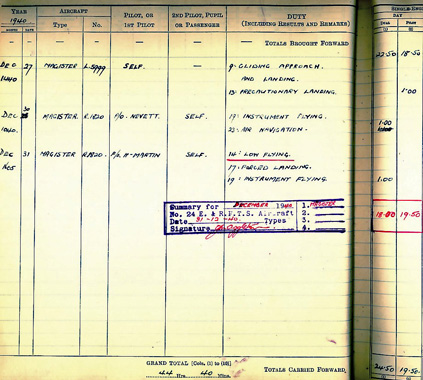 YEAR AIRCRAFT PILOT, OR 2ND PILOT, PUPIL DUTY SINGLE-EN
1940 Type No. 1ST PILOT OR PASSENGER (INCLUDING RESULTS AND REMARKS) DAY
MONTH DATE (1) (2)
— — — — — — TOTALS BROUGHT FORWARD 22.50 18.50
DEC 27 MAGISTER L5999 SELF. — 9. GLIDING APPROACH.
1940 AND LANDING.
13. PRECAUTIONARY LANDING. 1.00
DEC 30 MAGISTER R1820 P/O. NEVETT. SELF. 19. INSTRUMENT FLYING. 1.00
1940. 22. AIR NAVIGATION.
DEC 31 MAGISTER R1820. P/O. H-MARTIN SELF. 14. LOW FLYING.
17. FORCED LANDING.
19. INSTRUMENT FLYING. 1.00
Summary for DECEMBER 1940. 1. MAGISTER
No. 24 E. & R.F.T.S. Aircraft 2. 18.00 19.50
Date 31-12-40. Types 3.
Signature 4.
GRAND TOTAL [Cols. (1) to (10)]
44 Hrs. 40 Mins. TOTALS CARRIED FORWARD, 24.50 19.50